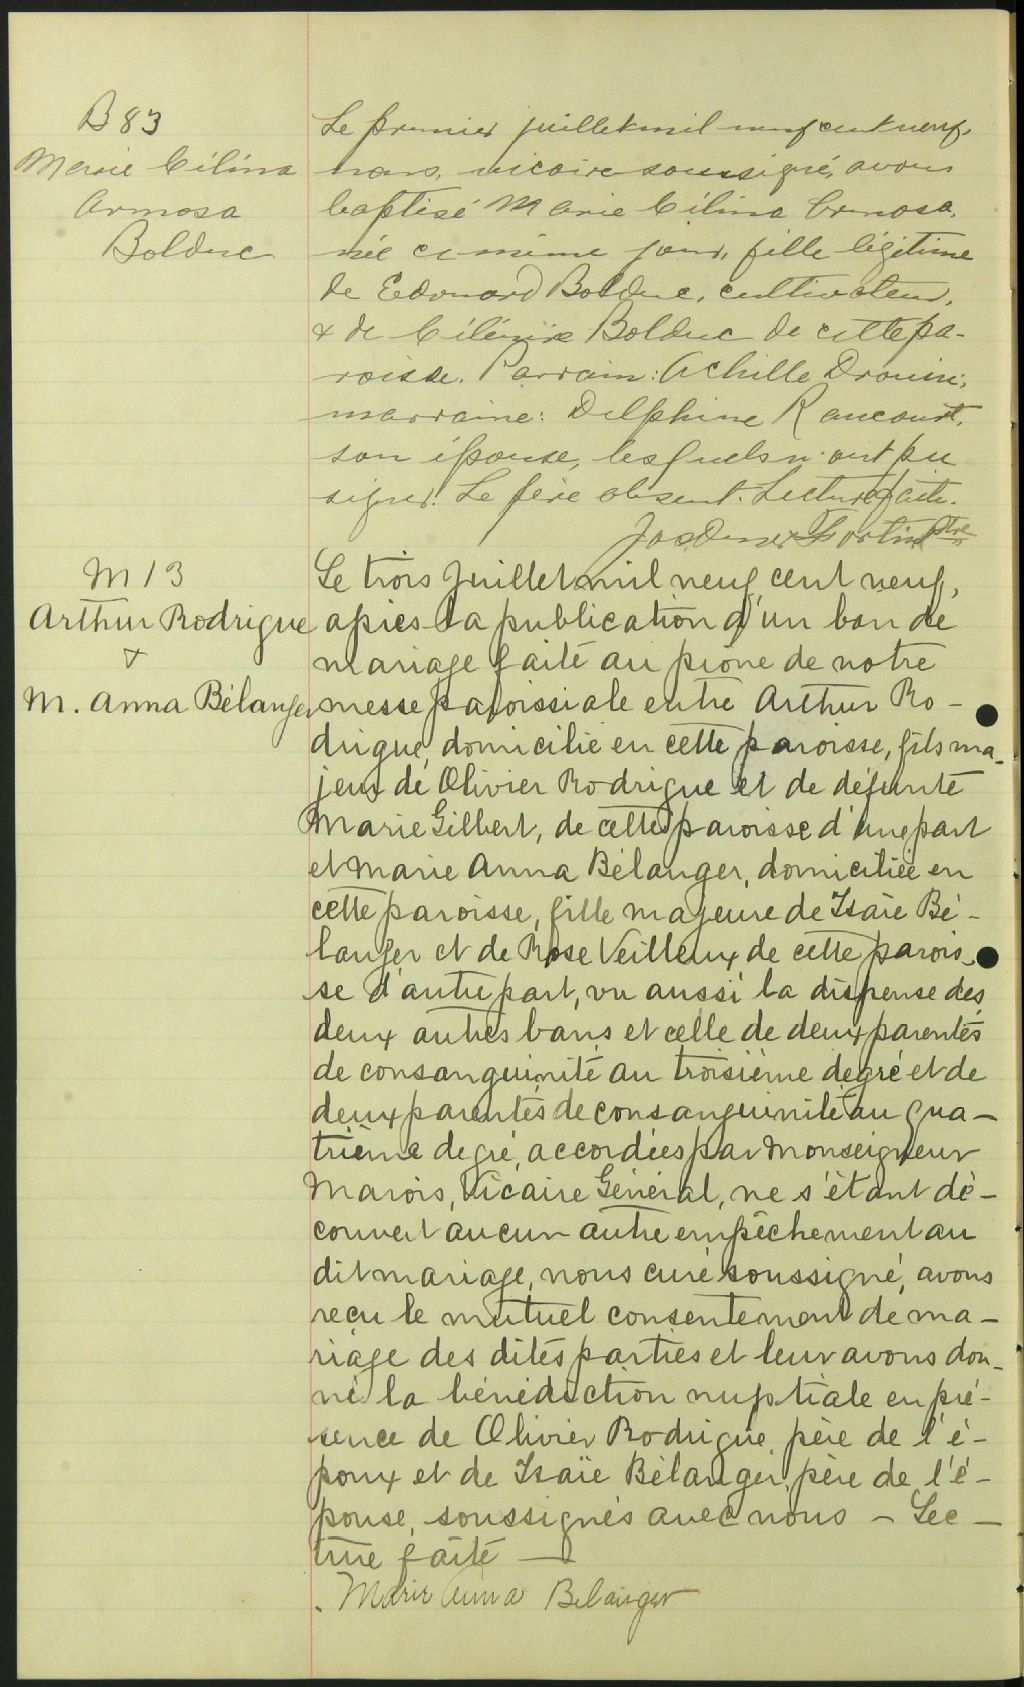 B 83
Marie Célina
Armosa
Bolduc
Le premier juillet mil neuf cent neuf,
nous, vicaire soussigné, avons
baptisé Marie Célina Armosa,
née ce même jour, fille légitime
de Edouard Bolduc, cultivateur,
& de Bolduc de cette pa-
roisse. Parrain: Achille Drouin;
marraine: Delphine Rancourt,
son épouse, lesquels n'ont pu
signer. Le père absent. Lecture faite.
Jos Fortin Ptre
M 13
Arthur Rodrigue
&
M. Anna Bélanger
Le trois Juillet mil neuf cent neuf,
après la publication d'un ban de
mariage faite au prône de notre
messe paroissiale entre Arthur Ro-
drigue, domicilié en cette paroisse, fils ma-
jeur de Olivier Rodrigue et de défunte
Marie Gilbert, de cette paroisse d'une part
et Marie Anna Bélanger, domiciliée en
cette paroisse, fille majeure de Isaïe Bé-
langer et de Rose Veilleux de cette parois-
se d'autre part, vu aussi la dispense des
deux autres bans et celle de deux parentés
de consanguinité au troisième degré et de
deux parentés de consanguinité au qua-
trième degré, accordées par Monseigneur
Marois, Vicaire Général, ne s'étant dé-
couvert aucun autre empêchement au
dit mariage, nous curé soussigné, avons
reçu le mutuel consentement de ma-
riage des dites parties et leur avons don-
né la bénédiction nuptiale en pré-
sence de Olivier Rodrigue, père de l'é-
poux et de Isaïe Bélanger, père de l'é-
pouse, soussignés avec nous - Lec-
ture faite —
Marie Anna Belanger